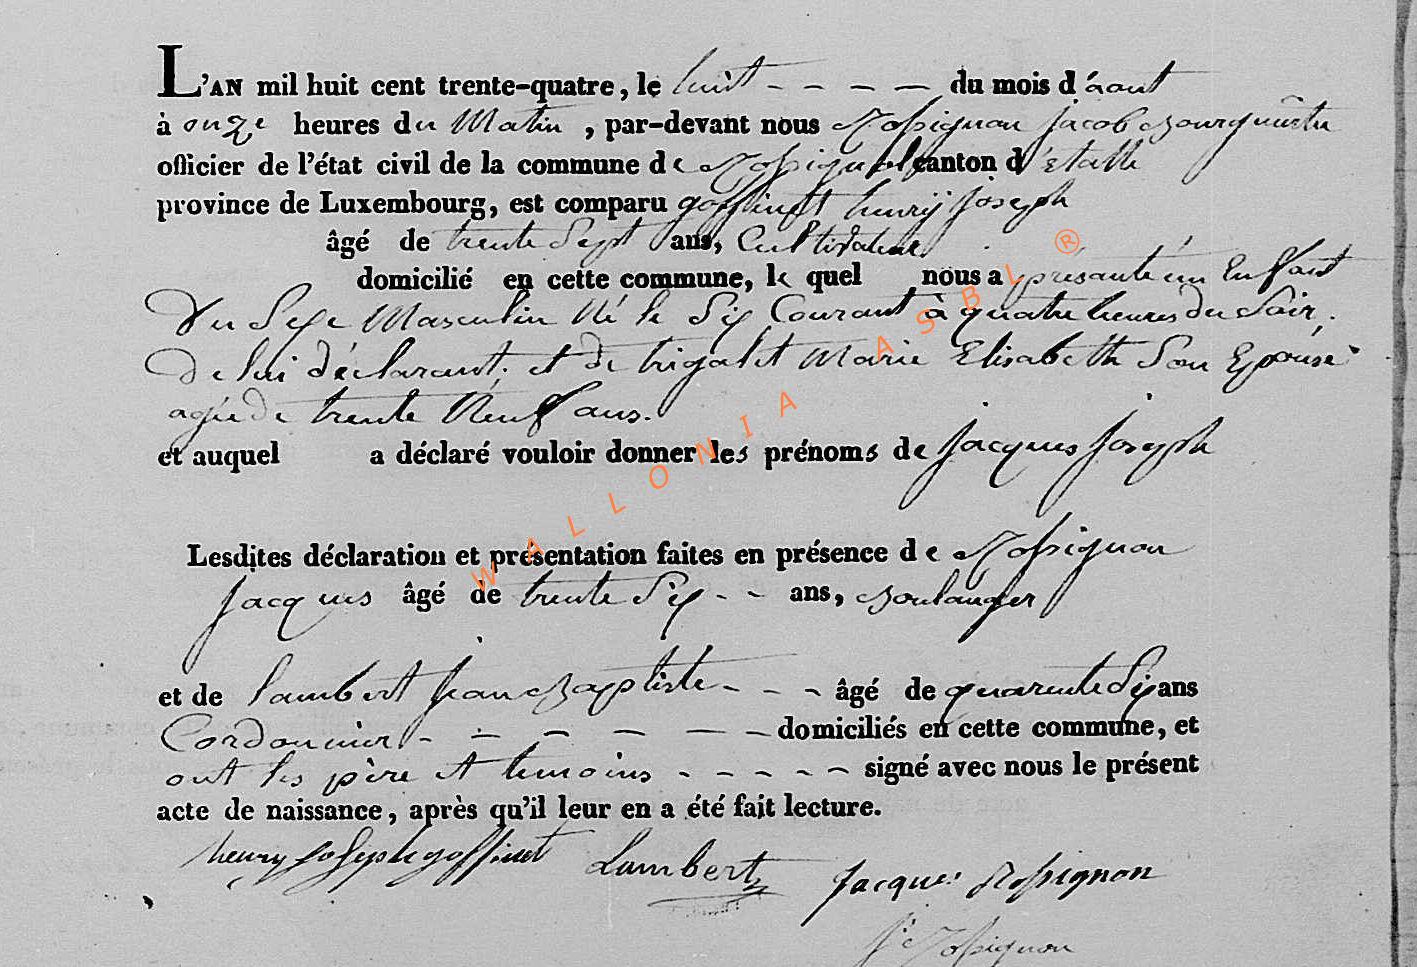 L'AN mil huit cent trente-quatre, le huit - - - - du mois d'aout
à onze heures du Matin, par-devant nous Rossignon Jacob Bourguimetre
officier de l'état civil de la commune de Rossignol canton d'étalle
province de Luxembourg, est comparu goffinet henrÿ Joseph
âgé de trente Sept ans, Cultivateur
domicilié en cette commune, le quel nous a présanté un Enfant
Du Sexe Masculin Né le Six Courant à quatre heures du Soir,
De lui déclarant, et de trigalet Marie Elisabeth Son Epouse
agée de trente Neuf ans.
et auquel a déclaré vouloir donner les prénoms de Jacques Joseph
Lesdites déclaration et présentation faites en présence de Rossignon
Jacques âgé de trente Six - - ans, Boulanger
et de Lambert Jean Baptiste - - - âgé de quarente Six ans
Cordonnier - - - - - - domiciliés en cette commune, et
ont les père et temoins - - - - - signé avec nous le présent
acte de naissance, après qu'il leur en a été fait lecture.
henry Joseph goffinet Lambert Jacques Rossignon
J Rossignon
WALLONIA ASBL ®